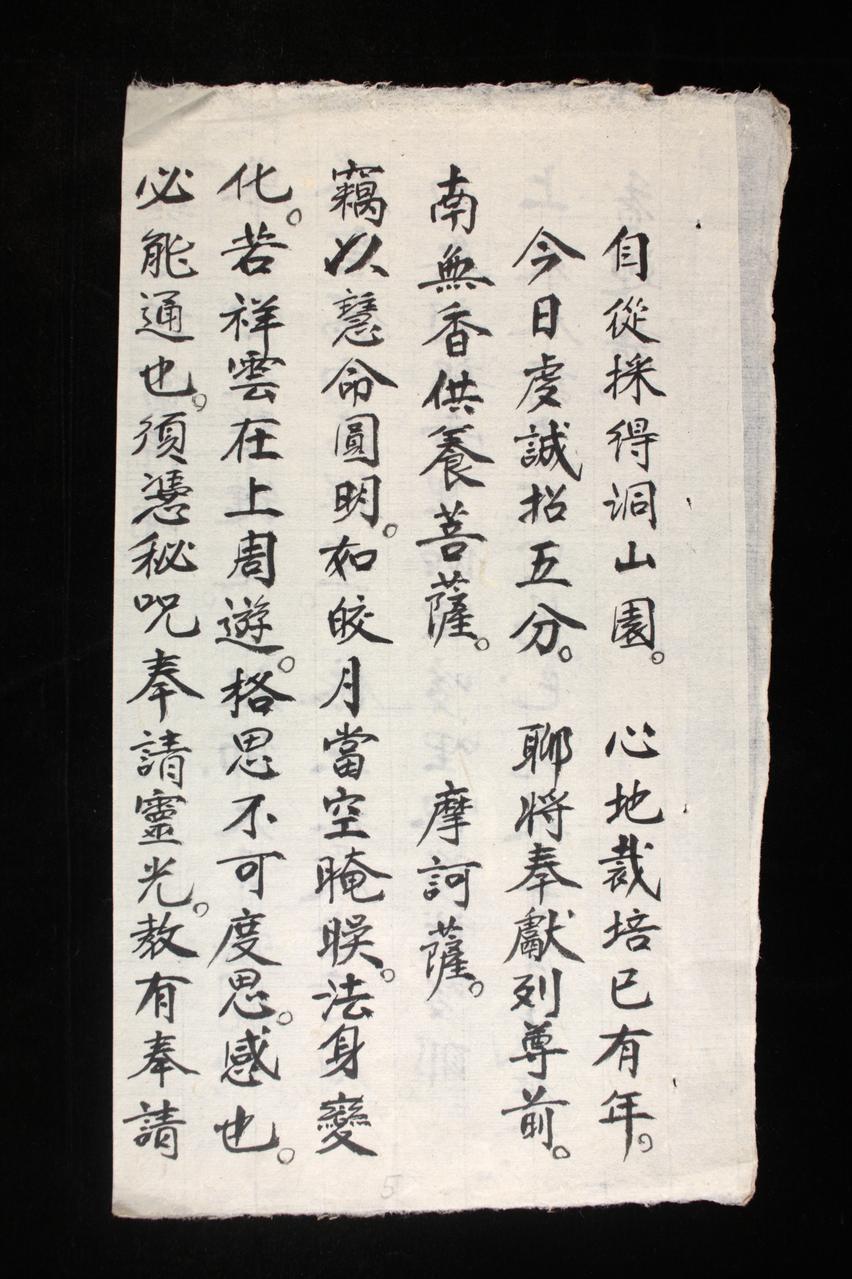 自從採得洞山園。 心地裁培已有年。
今日虔誠招五分。 聊將奉獻列尊前。
南無香供養菩薩。 摩訶薩。
竊以慧命圓明。如皎月當空晻暎。法身變
化。若祥雲在上周遊。格思不可度思。感也
必能通也。須憑秘咒奉請靈光。教有奉請
5